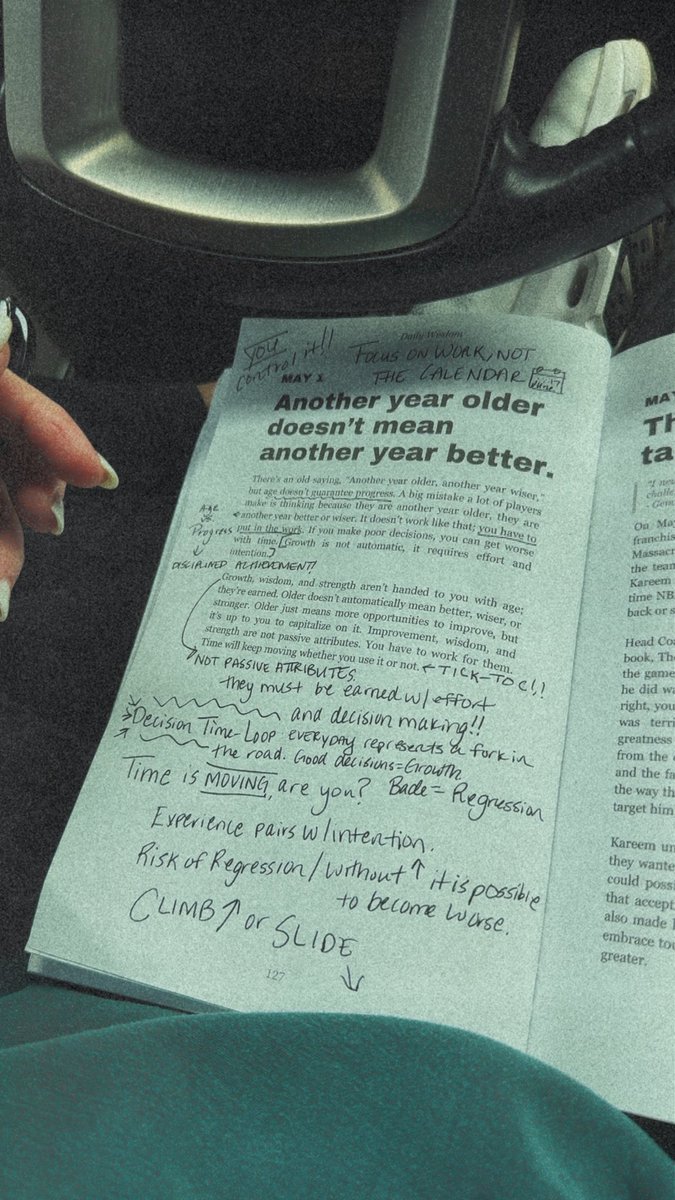 YOU
control it!!
Daily Wisdom
FOCUS ON WORK, NOT
THE CALENDAR
MAY 1
Another year older
doesn't mean
another year better.
There's an old saying, "Another year older, another year wiser,"
but age doesn't guarantee progress. A big mistake a lot of players
make is thinking because they are another year older, they are
another year better or wiser. It doesn't work like that; you have to
put in the work. If you make poor decisions, you can get worse
with time. Growth is not automatic, it requires effort and
intention.
Age
Progress
DISCIPLINED ACHIEVEMENT!
Growth, wisdom, and strength aren't handed to you with age;
they're earned. Older doesn't automatically mean better, wiser, or
stronger. Older just means more opportunities to improve, but
it's up to you to capitalize on it. Improvement, wisdom, and
strength are not passive attributes. You have to work for them.
Time will keep moving whether you use it or not. ← TICK-TOC!!
NOT PASSIVE ATTRIBUTES.
they must be earned w/ effort
and decision making!!
Decision Time-Loop EVERYDAY represents a fork in
the road. Good decisions = Growth
Bade = Regression
Time is MOVING, are you?
Experience pairs w/ intention.
Risk of Regression / without ↑ it is possible
to become worse.
CLIMB ↑ or SLIDE
↓
127
MAY
Th
ta
"I nev
challe
On May
franchis
Massacr
the team
Kareem
time NB
back or s
Head Coa
book, The
the game
he did wa
right, you
was terri
greatness
from the
and the fa
the way th
target him
Kareem un
they wante
could possi
that accept
also made
embrace tou
greater.